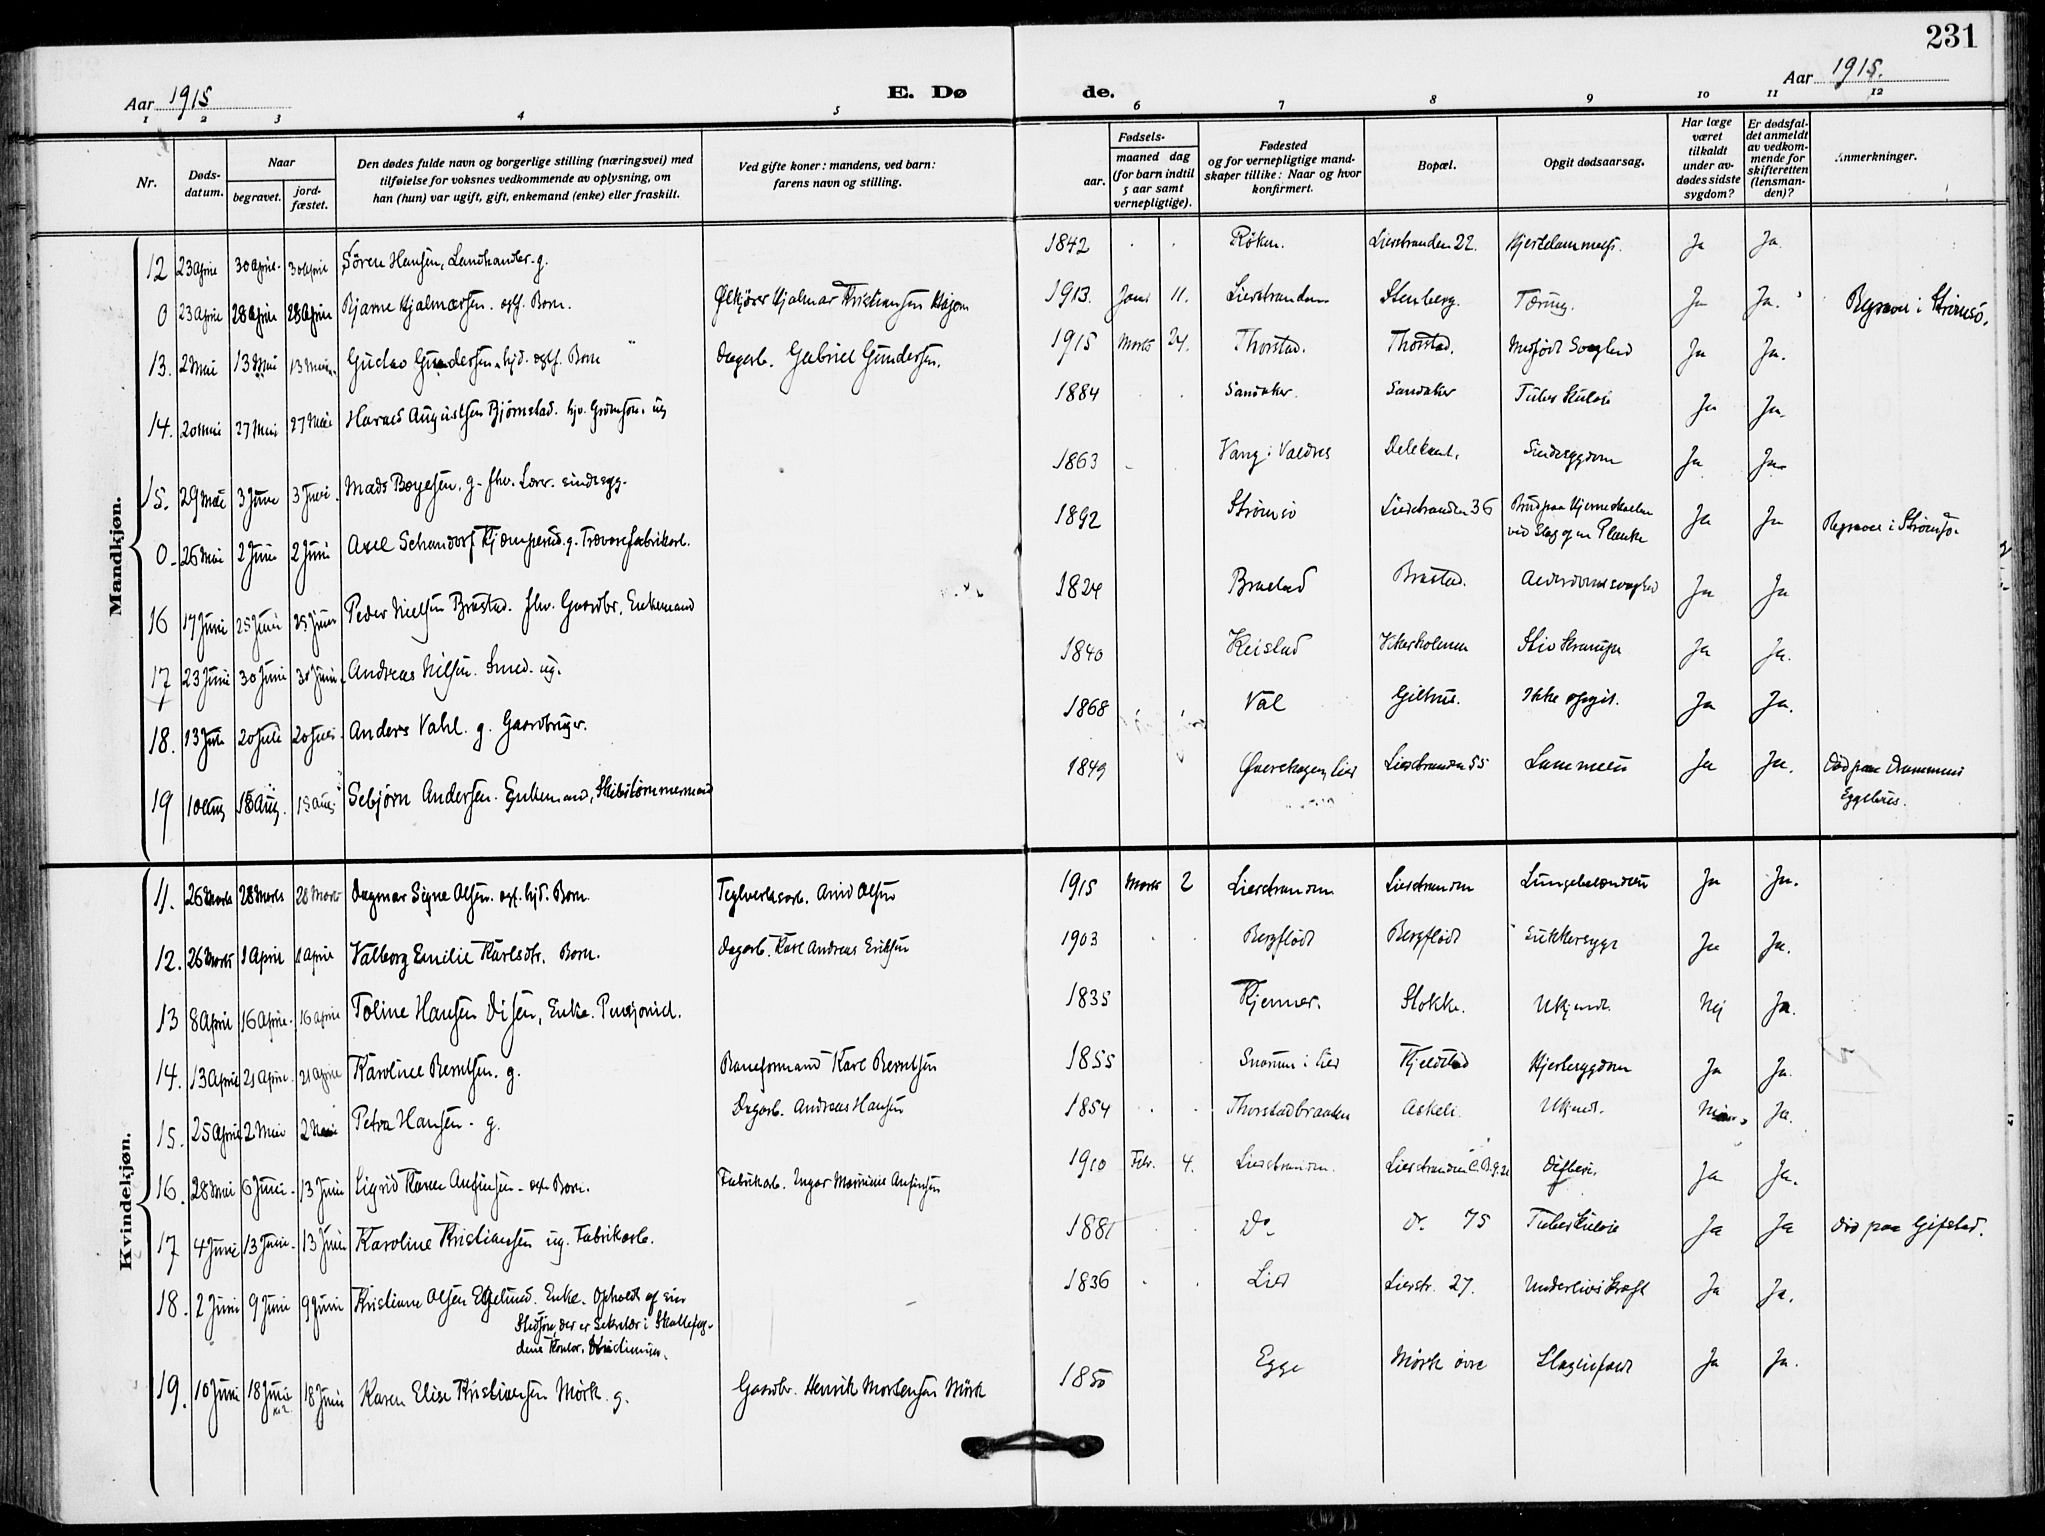 231
Aar 1915
E. Dø
de.
Aar 1915.
1 2 3 4 5 6 7 8 9 10 11 12
Nr.
Døds-
datum.
Naar
begravet.
jord-
fæstet.
Den dødes fulde navn og borgerlige stilling (næringsvei) med
tilføielse for voksnes vedkommende av oplysning, om
han (hun) var ugift, gift, enkemand (enke) eller fraskilt.
Ved gifte koner: mandens, ved barn:
farens navn og stilling.
Fødsels-
aar.
maaned dag
(for barn indtil
5 aar samt
vernepligtige).
Fødested
og for vernepligtige mand-
skaper tillike: Naar og hvor
konfirmert.
Bopæl.
Opgit dødsaarsag.
Har læge
været
tilkaldt
under av-
dødes sidste
sygdom?
Er dødsfal-
det anmeldt
av vedkom-
mende for
skifteretten
(lensman-
den)?
Anmerkninger.
Mandkjøn.
12 23 April 30 April 30 April Søren Hansen, Landhandler. g. 1842 Røken. Lierstranden 22. Ja Ja.
0 23 April 28 April 28 April Bjarne Hjalmarsen. egtf. Barn. Ølkjører Hjalmar Kristiansen 1913. Juni 11. Lierstranden Stenberg. Tæring. Ja Ja. Begravet i Strømsø.
13. 2 Mai 13 Mai 13 Mai Gustav Gundersen. hjd. egtf. Barn Dagarb. Gabriel Gundersen. 1915 Marts 24. Thorstad. Thorstad. Medfødt Svaghed Ja Ja.
14. 20 Mai 27 Mai 27 Mai Augustsen Bjørnstad. ug 1884 Sandaker. Sandaker Tuberkulose Ja Ja.
15. 29 Mai 3 Juni 3 Juni Mads Boyesen, g. fhv. Lærer. sindssyg. 1863 Vang i Valdres Sindssygdom Ja Ja
0 26 Mai 2 Juni 2 Juni Axel Schandorf Kjemperud. g. Trævarefabrikarb. 1892 Strømsø Lierstranden 36 Brud paa Hjerneskallen
ved Slag af en Planke Ja Ja Begravet i Strømsø.
16 17 Juni 25 Juni 25 Juni Peder Nielsen Brastad. fhv. Gaardbr. Enkemand 1824 Brastad Brastad. Alderdomssvaghed Ja Ja
17 23 Juni 30 Juni 30 Juni Andreas Nilsen. Smed. ug. 1840 Keistad Stivkrampe Ja Ja.
18. 13 Juli 20 Juli 20 Juli Anders Vahl. g. Gaardbruger. 1868 Val Gilhus. Ikke opgit. Ja Ja.
19 10 Aug 18 Aug. 18 Aug Sebjørn Andersen. Enkemand, Skibstømmermand 1849 Lierstranden 55 Ja Ja. Død paa Drammens
Kvindekjøn.
11. 26 Marts 28 Marts 28 Marts Dagmar Signe Olsen. egt. hjd. Barn. Teglverksarb. Olsen 1915 Marts 2 Lierstranden Lierstranden Lungebetændelse Ja Ja.
12. 26 Marts 1 April 1 April Valborg Emilie Karlsdtr. Barn. Dagarb. Karl Andreas Eriksen 1903 Bergflødt Bergflødt Sukkersyge Ja Ja.
13 8 April 16 April 16 April Toline Hansen Disen, Enke. 1835 Kjenner. Stokke. Ukjendt. Nej Ja.
14. 13 April 21 April 21 April Karoline Berntsen. g. Baneformand Karl Berntsen 1855 i Lier Kjelstad Hjertesygdom Ja Ja.
15. 25 April 2 Mai 2 Mai Petra Hansen. g. Dagarb. Andreas Hansen 1854 Thorstadbraaten Ukjendt. Ja.
16. 28 Mai 6 Juni 13 Juni Sigrid Karen egt. Barn. Fabrikarb. 1910 Febr. 4. Lierstranden. Lierstranden Difteri. Ja Ja.
17 4 Juni 13 Juni 13 Juni Karoline Kristiansen ug. Fabrikarb. 1881 Do Do 75 Tuberkulose Ja Ja Død paa Gifstad.
18. 2 Juni 9 Juni 9 Juni Kristiane Olsen Egelund. Enke. Opholdt af sin
Stedsøn, der er Sekretær i
Kontor, Kristiania. 1836 Lier Lierstr. 27. Underlivskræft Ja Ja.
19. 10 Juni 18 Juni 18 Juni Karen Elise Kristiansen Mørk. g. Gaardbr. Henrik Mortensen Mørk 1850 Egge Mørk øvre Ja Ja.